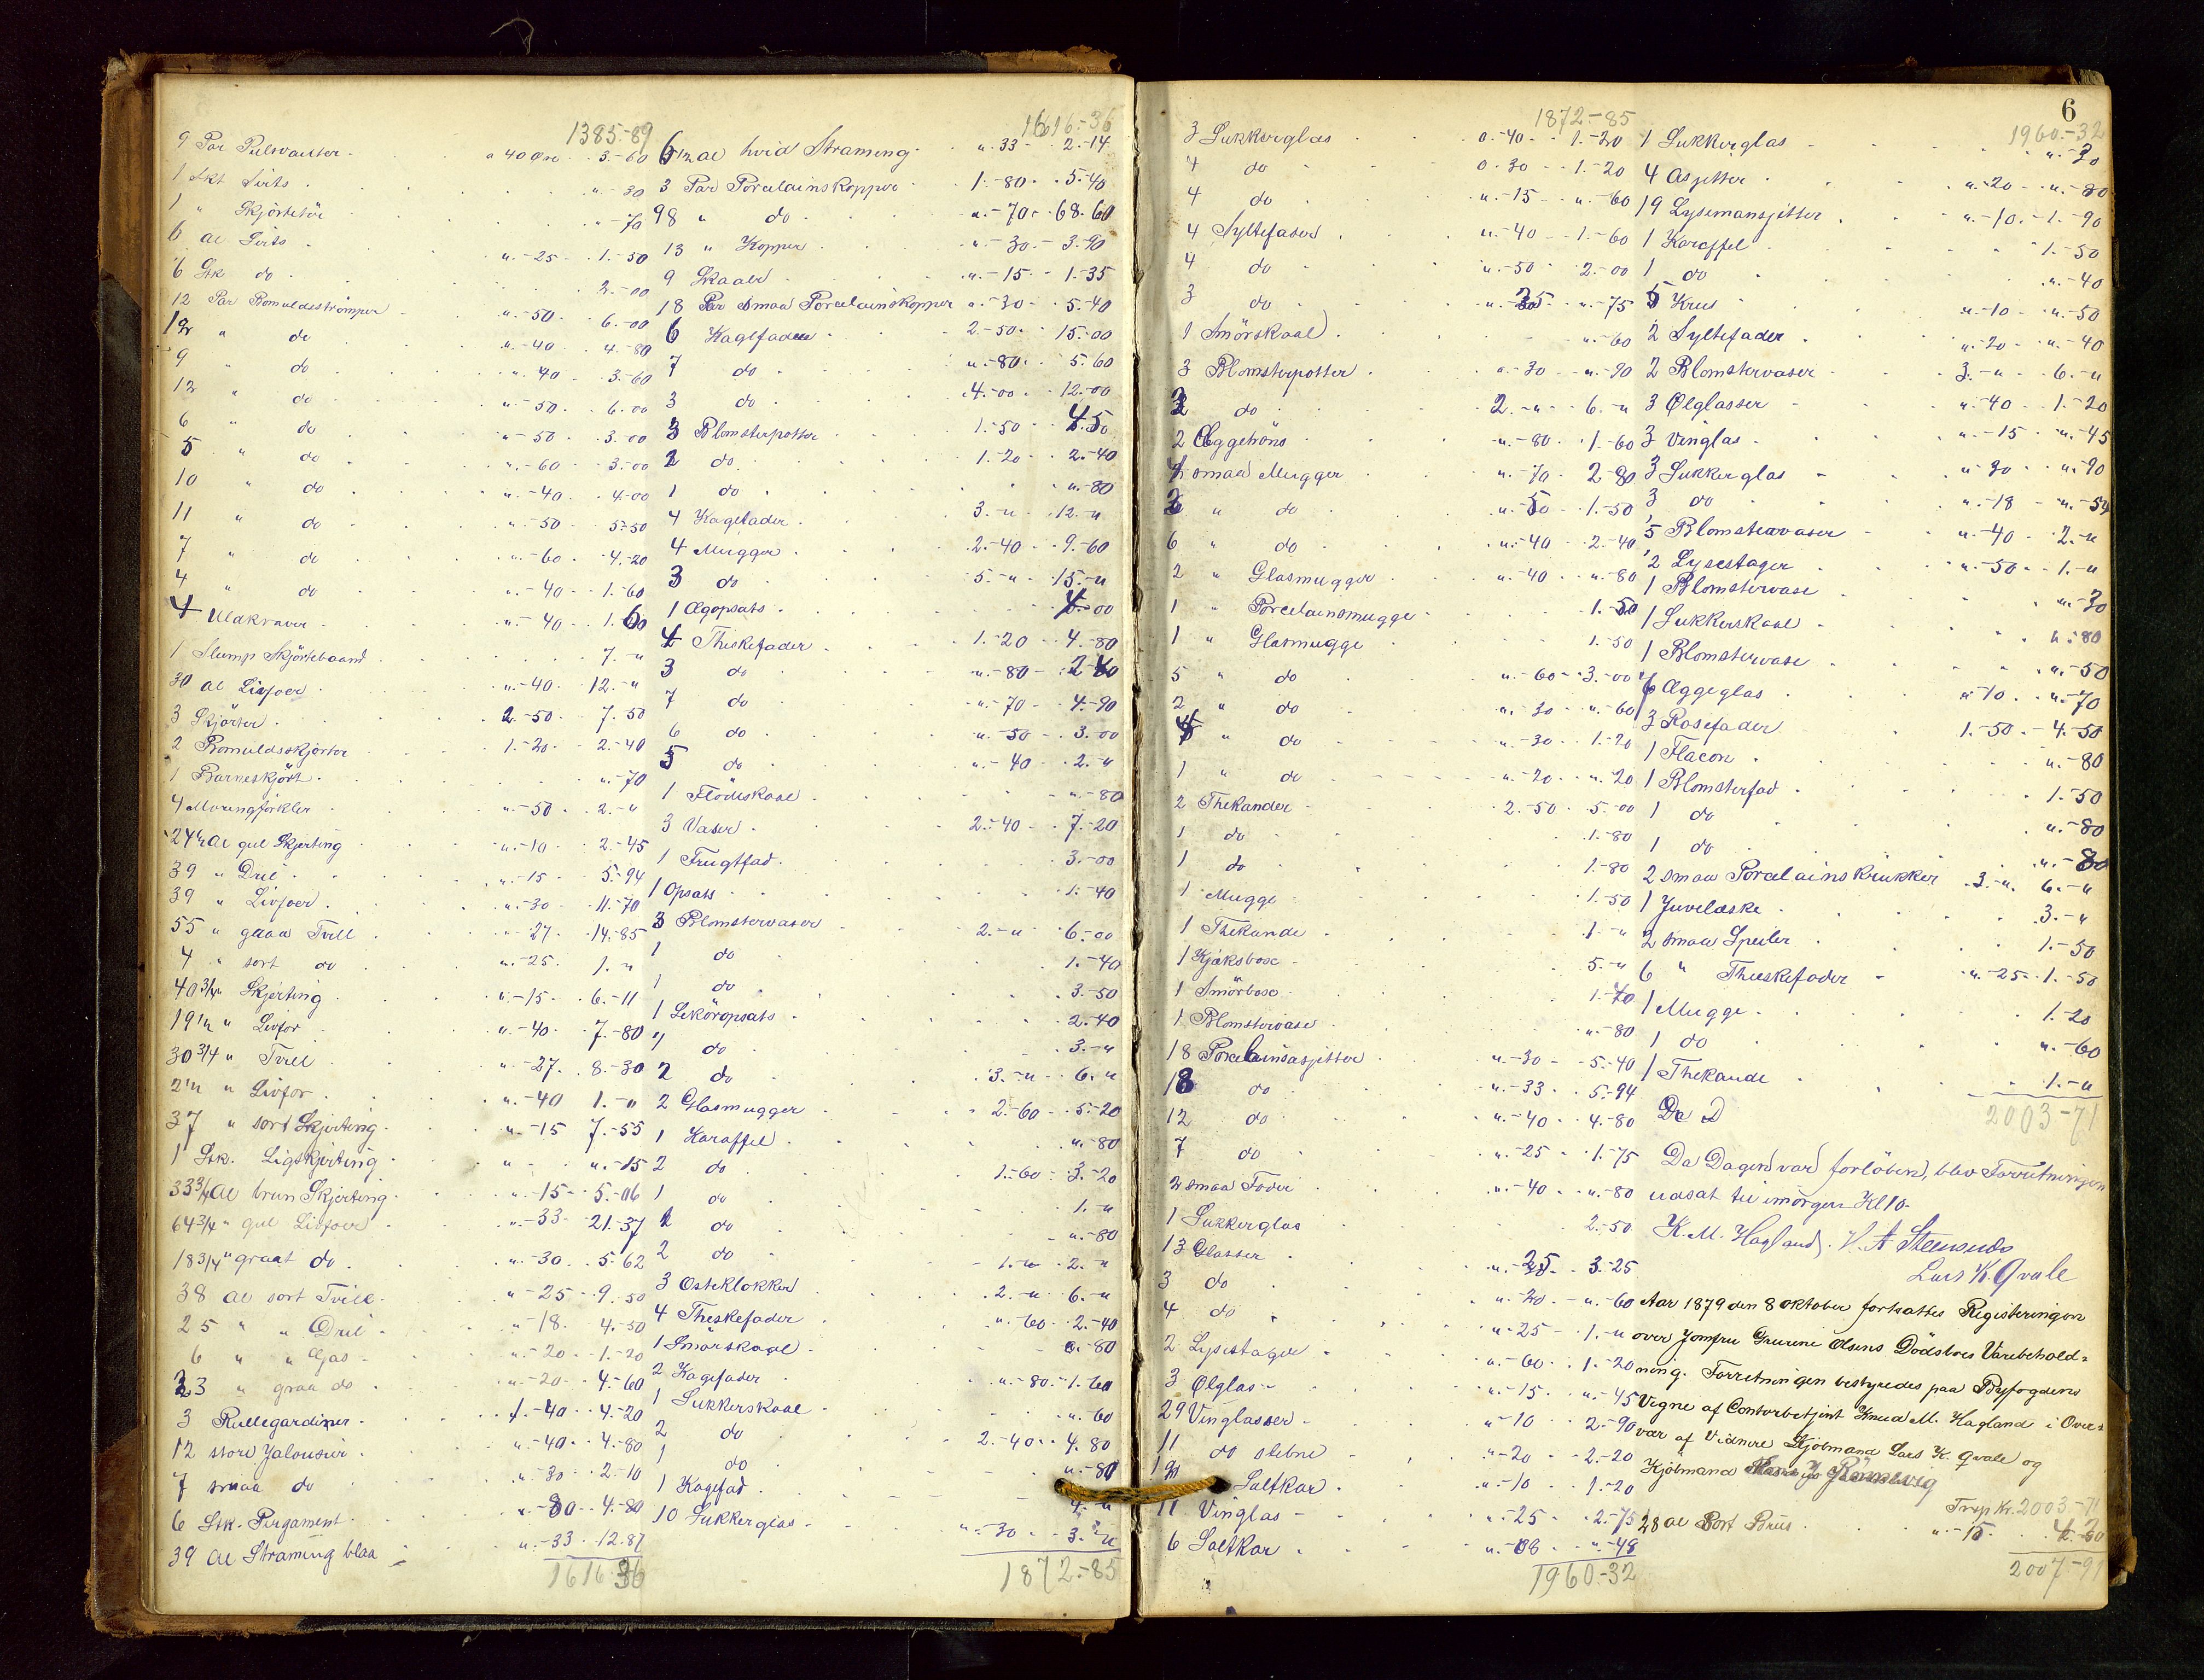 1385.-89
9 Par Pulsvanter a 40 Øre 3.-60
1 Skt Sirts u.-30
1 " Skjörtetöi "-70
6 al Sirts u.-25 1.-50
6 Stk do 2.-00
12 Par Bomuldsströmper u.-50 6.-00
12 " do u.-40 4.-80
9 " do u.-40 3.-60
12 " do u.-50 6.00
6 " do u.-50 3.00
5 " do u.-60 3.-00
10 " do u.-40 4.-00
11 " do u.-50 5.-50
7 " do u.-60 4.-20
4 " do u.-40 1.-60
4 Uldkraver u.-40 1.60
1 Slump Skjörtebaand 7.-u
30 al Livfoer u.-40 12.-u
3 Skjörter 2.-50 7.50
2 Bomuldsskjorter 1.-20 2.-40
1 Barneskjört u.-70
4 Moringforkler u.-50 2.-u
24½ al gul Skjerting u.-10 2.-45
39 " Dril u.-15 5.-94
39 " Livfoer u.-30 11.-70
55 " graa Tvill -27 14.-85
4 " sort do u.-25 1.-u
40¾ " Skjerting u.-15 6.-11
19½ " Livfor u.-40 7.-80
30¾ " Tvill u.-27 8.-30
2½ " Livfor u.-40 1.-u
37 " sort Skjerting u.-15 7.-55
1 Stk. Ligskjerting u.-15
33¾ al brun Skjerting u.-15 5.-06
64¾ " gul Livfoer u.-33 21.-37
18¾ " graat do u.-30 5.-62
38 al sort Tvill u.-25 9.50
25 " " Dril u.-18 4.-50
6 " " Gas u.-20 1.-20
23 " graa do u.-20 4.-60
3 Rullegardiner 1.-40 4.-20
12 store Jalousier u.-40 4.-80
7 smaa do u.-30 2.-10
6 Stk. Pergament u.-80 4.-80
39 al Straming blaa u.-33 12.87
1616.36
1616.-36
6½ al hvid Straming u.-33 2.-14
3 Par Porcelainskopper 1.-80 5.-40
98 " do u.-70 68.60
13 " Kopper u.-30 3.-90
9 Skaaler u.-15 1.-35
18 Par smaa Porcelainskopper u.-30 5.-40
6 Kagefade 2.-50 15.-00
7 do u.-80 5.-60
3 do 4.-00 12.-00
3 Blomsterpotter 1.-50 4.50
2 do 1.-20 2.-40
1 do u.-80
4 Kagefader 3.-u 12.-u
4 Mugger 2.-40 9.-60
3 do 5.-u 15.-u
1 Ægopsats 4.-00
4 Theskefader 1.-20 4.-80
3 do u.-80 2.40
7 do u.-70 4.-90
6 do u.-50 3.00
5 do u.-40 2.-u
1 Flödeskaal u.-80
3 Vaser 2.-40 7.-20
1 Frugtfad 3.-00
1 Opsats 1.-40
3 Blomstervaser 2.-u 6.-00
1 do 1.-40
1 do 3.-50
1 Liköropsats 2.-40
" do 3.-u
2 do 3.-u 6.-u
2 Glasmugger 2.-60 5.-20
1 Karaffel u.-80
2 do 1.-60 3.-20
1 do 1.-u
1 do u.-80
2 do 1.-u 2.-u
3 Osteklokker 2.-u 6.-u
4 Theskefader u.-60 2.-40
1 Smörskaal 0.-80
2 Kagefader u.-80 1.-60
1 Sukkerskaal u.-60
2 do 2.-40 4.80
1 do u.-80
1 Kagefad 4.-u
10 Sukkerglas u.-30 3.-u
1872.-85
6
1872.-85
3 Sukkerglas 0.-40 1.-20
4 do 0.30 1.-20
4 do u.-15 u.-60
4 Syltefader u.-40 1.-60
4 do u.-50 2.-00
3 do u.-25 u.-75
1 Smörskaal u.-60
3 Blomsterpotter u.-30 u.-90
3 do 2.-u 6.-u
2 Æggehöns u.-80 1.-60
4 smaa Mugger u.-70 2.-80
3 " do u.-50 1.-50
6 " do u.-40 2.-40
2 " Glasmugger u.-40 u.-80
1 " Porcelainsmugge 1.-50
1 " Glasmugge 1.50
5 " do u.-60 3.-00
2 " do u.-30 u.-60
4 " do u.-30 1.-20
1 " do u.-20 u.20
2 Thekander 2.-50 5.-00
1 do 1.-80
1 do 1.-80
1 Mugge 1.-50
1 Thekande 1.-u
1 Kjæksbose 5.-u
1 Smörbose 1.-40
1 Blomstervase u.-80
18 Porcelainsasjetter u.-30 5.-40
18 do u.-33 5.-94
12 do u.-40 4.-80
7 do u.-25 1.-75
2 smaa Foder u.-40 u.-80
1 Sukkerglas 2.-50
13 Glasser u.-25 3.-25
3 do u.-20 u.-60
4 do u.-25 1.-u
2 Lysestager u.-60 1.-20
3 Ølglas u.-15 u.-45
29 Vinglasser u.-10 2.-90
11 do slebne u.-20 2.-20
12 Saltkar u.-10 1.-20
11 Vinglas u.-25 2.-75
6 Saltkar u.-08 u.-48
1960.-32
1960.-32
1 Sukkerglas u.-30
4 Asjetter u.-20 u.-80
19 Lysemansjetter u.-10 1.-90
1 Karaffel 1.-50
1 do u.-40
5 Krus u.-10 u.-50
2 Syltefader u.-20 u.-40
2 Blomstervaser 3.-u 6.-u
3 Ølglasser u.-40 1.-20
3 Vinglas u.-15 u.-45
3 Sukkerglas u.-30 u.-90
3 do u.-18 u.-54
5 Blomstervaser u.-40 2.-u
2 Lysestager u.-50 1.-u
1 Blomstervase u.-30
1 Sukkerskaal u.-80
1 Blomstervase u.-50
7 Æggeglas u.-10 u.-70
3 Rosefader 1.-50 4.-50
1 Flacon u.-80
1 Blomsterfad 1.-50
1 do u.-80
1 do u.-80
2 smaa Porcelainskrukker 3.-u 6.-u
1 Juvelæske 3.-u
2 smaa Speiler 1.-50
6 " Theeskefader u.-25 1.-50
1 Mugge 1.-20
1 do u.-60
1 Thekande 1.-u
2003-71
Da Dagen var forlöben, blev Forretningen
udsat til imorgen Kl 10.
K. M. Hagland. V. A.
Lars K. Qvale
Aar 1879 den 8 Oktober fortsattes Registeringen
over Jomfru Gurine Olsens Dödsboes Varebehold=
ning. Forretningen bestyredes paa Byfogdens
Vegne af Contorbetjent Knud M. Hagland i Over=
vær af Vidnerne Kjöbmand Lars K. Qvale og
Kjöbmand
Trsp Kr. 2003-71
28 al Sort Brüs u.-15 4.-20
2007-91